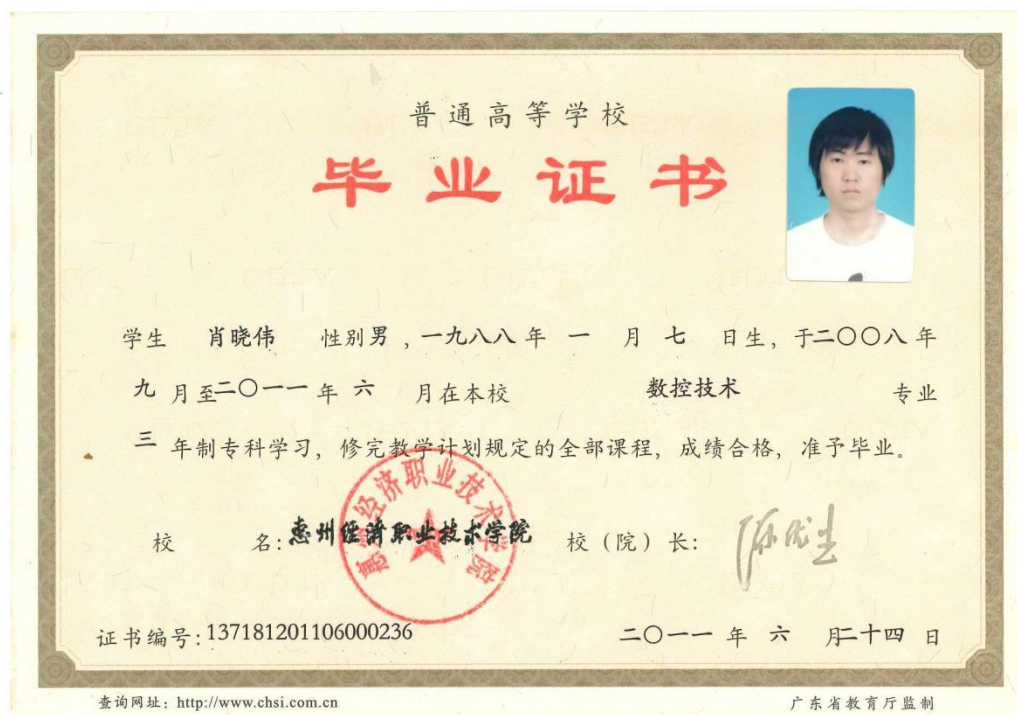 普通高等学校
毕业证书
学生 肖晓伟 性别 男 ,一九八八 年 一 月 七 日生, 于二〇〇八 年
九 月至二〇一一 年 六 月在本校 数控技术 专业
三 年制专科学习, 修完教学计划规定的全部课程, 成绩合格, 准予毕业。
校 名:惠州经济职业技术学院 校(院)长:
惠州经济职业技术学院
证书编号:137181201106000236 二〇一一 年 六 月二十四 日
查询网址: http://www.chsi.com.cn 广东省教育厅监制